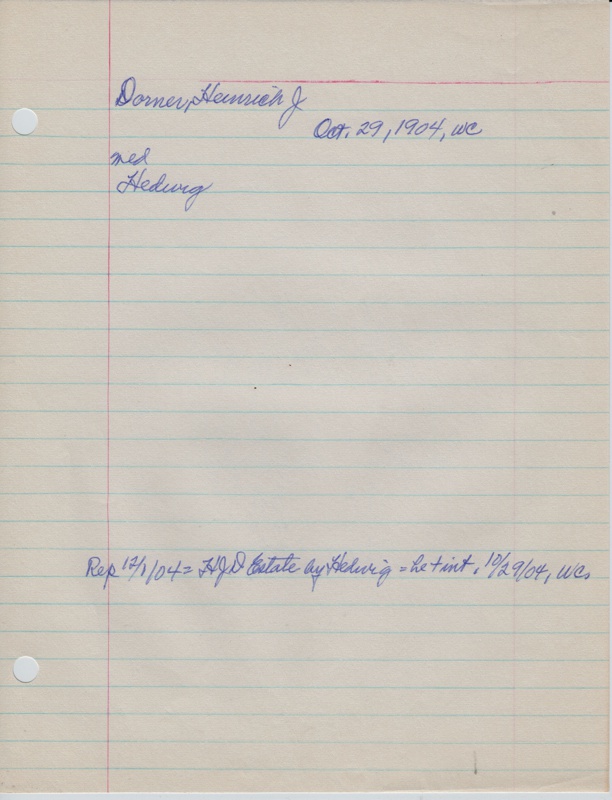 Dorner, Heinrich J
Oct. 29, 1904, WC
med
Hedwig
Rep 12/1/04 = HJD Estate by Hedwig = he + int. 10/29/04, WCo